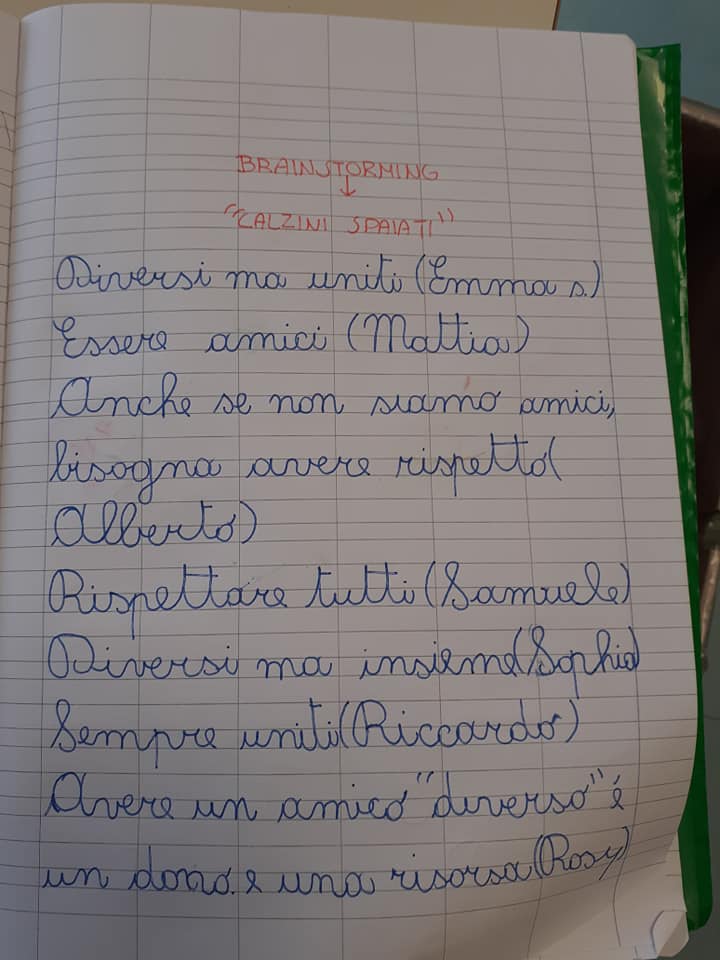 BRAINSTORMING
↓
"CALZINI SPAIATI"
Diversi ma uniti (Emma s.)
Essere amici (Mattia)
Anche se non siamo amici,
bisogna avere rispetto(
Alberto)
Rispettare tutti (Samuele)
Diversi ma insieme(Sophia)
Sempre uniti(Riccardo)
Avere un amico "diverso" é
un dono e una risorsa (Rosy)